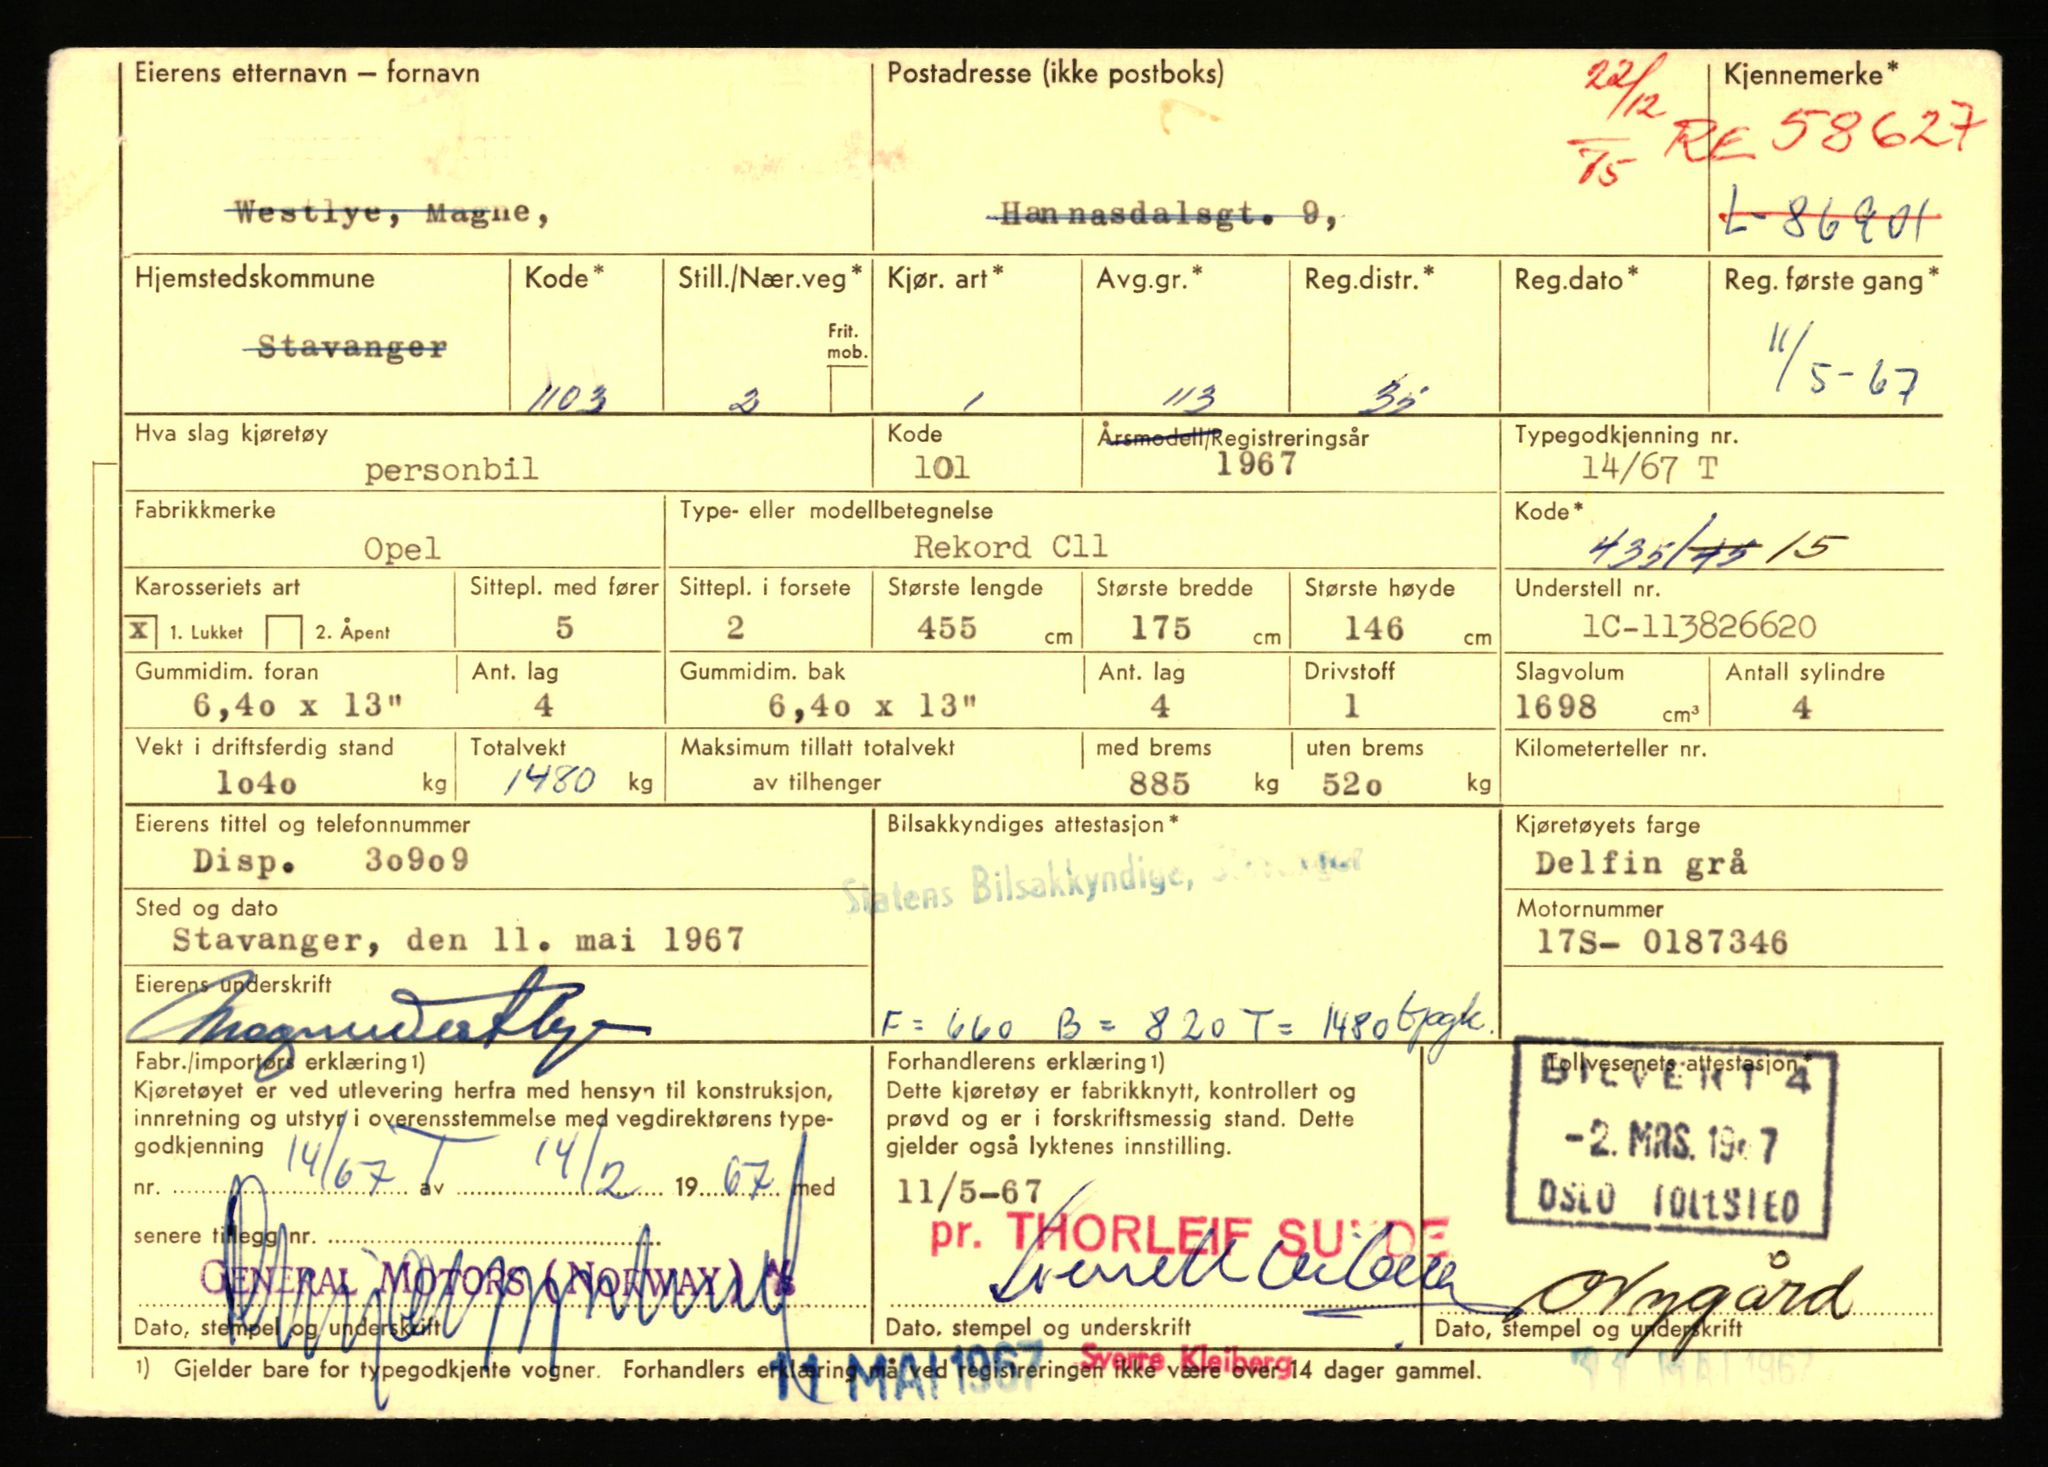 Eierens etternavn – fornavn
Westlye, Magne,
Postadresse (ikke postboks)
Hannasdalsgt. 9,
22/12
75
Kjennemerke*
RE 58627
L-86901
Hjemstedskommune
Stavanger
Kode*
1103
Still./Nær.veg*
Frit.
mob.
2
Kjør. art*
1
Avg.gr.*
113
Reg.distr.*
35
Reg.dato*
Reg. første gang*
11/5-67
Hva slag kjøretøy
personbil
Kode
101
Årsmodell/Registreringsår
1967
Typegodkjenning nr.
14/67 T
Fabrikkmerke
Opel
Type- eller modellbetegnelse
Rekord C11
Kode*
435/45 15
Karosseriets art
X 1. Lukket 2. Åpent
Sittepl. med fører
5
Sittepl. i forsete
2
Største lengde
455 cm
Største bredde
175 cm
Største høyde
146 cm
Understell nr.
1C-113826620
Gummidim. foran
6,4o x 13"
Ant. lag
4
Gummidim. bak
6,4o x 13"
Ant. lag
4
Drivstoff
1
Slagvolum
1698 cm³
Antall sylindre
4
Vekt i driftsferdig stand
1o4o kg
Totalvekt
1480 kg
Maksimum tillatt totalvekt
av tilhenger
med brems
885 kg
uten brems
52o kg
Kilometerteller nr.
Eierens tittel og telefonnummer
Disp. 3o9o9
Bilsakkyndiges attestasjon*
Statens Bilsakkyndige, Stavanger
Kjøretøyets farge
Delfin grå
Sted og dato
Stavanger, den 11. mai 1967
Motornummer
17S- 0187346
Eierens underskrift
Magne Westlye
F = 660 B = 820 T = 1480
Fabr./importørs erklæring 1)
Kjøretøyet er ved utlevering herfra med hensyn til konstruksjon,
innretning og utstyr i overensstemmelse med vegdirektørens type-
godkjenning
nr. 14/67 T av 14/2 1967 med
senere tillegg nr.
GENERAL MOTORS (NORWAY)
Dato, stempel og underskrift
Forhandlerens erklæring 1)
Dette kjøretøy er fabrikknytt, kontrollert og
prøvd og er i forskriftsmessig stand. Dette
gjelder også lyktenes innstilling.
11/5-67
pr. THORLEIF SUNDE
Dato, stempel og underskrift
Sverre Kleiberg
Tollvesenets attestasjon*
BILVERT 4
-2. MRS. 1967
OSLO TOLLSTED
Nygård
Dato, stempel og underskrift
1) Gjelder bare for typegodkjente vogner. Forhandlers erklæring må ved registreringen ikke være over 14 dager gammel.
11 MAI 1967
11 MAI 1967